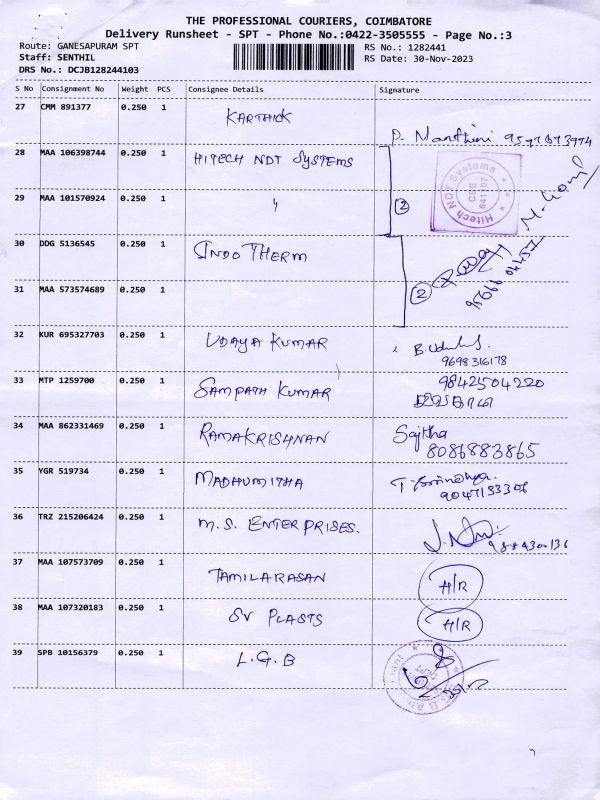 THE PROFESSIONAL COURIERS, COIMBATORE
Delivery Runsheet - SPT - Phone No.:0422-3505555 - Page No.:3
Route: GANESAPURAM SPT
RS No.: 1282441
Staff: SENTHIL
RS Date: 30-Nov-2023
DRS No.: DCJB128244103
S No Consignment No Weight PCS Consignee Details Signature
27 CMM 891377 0.250 1 KARTHICK
28 MAA 106398744 0.250 1 HITECH NDT SYSTEMS
Hitech NDT Systems
CBE
641107
29 MAA 101570924 0.250 1 " 2
30 DDG 5136545 0.250 1 INDO THERM
31 MAA 573574689 0.250 1 2
32 KUR 695327703 0.250 1 UDAYA KUMAR
9698316178
33 MTP 1259700 0.250 1 SAMPATH KUMAR 9842504220
34 MAA 862331469 0.250 1 RAMAKRISHNAN Sajitha
8086883865
35 YGR 519734 0.250 1 MADHUMITHA
9047133306
36 TRZ 215206424 0.250 1 M.S. ENTERPRISES.
37 MAA 107573709 0.250 1 TAMILARASAN H/R
38 MAA 107320183 0.250 1 SV PLASTS H/R
39 SPB 10156379 0.250 1 L.G.B